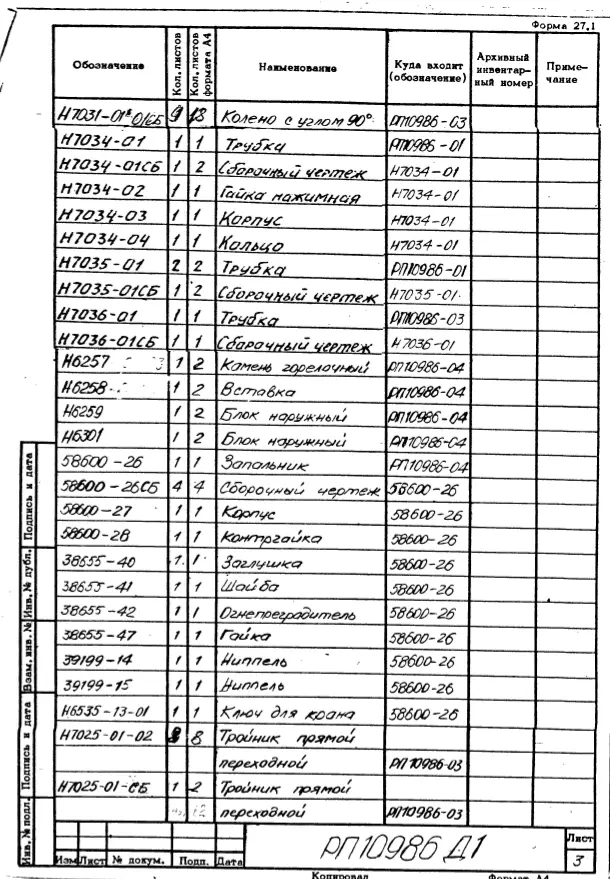 Форма 27.1
Обозначение Кол. листов Кол. листов формата А4 Наименование Куда входит (обозначение) Архивный инвентарный номер Примечание
Н7031-01 9 18 Колено с углом 90° РП10986-03
Н7034-01 1 1 Трубка РП10986-01
Н7034-01СБ 1 2 Сборочный чертеж Н7034-01
Н7034-02 1 1 Гайка нажимная Н7034-01
Н7034-03 1 1 Корпус Н7034-01
Н7034-04 1 1 Кольцо Н7034-01
Н7035-01 2 2 Трубка РП10986-01
Н7035-01СБ 1 2 Сборочный чертеж Н7035-01
Н7036-01 1 1 Трубка РП10986-03
Н7036-01СБ 1 1 Сборочный чертеж Н7036-01
Н6257 1 2 Камень горелочный РП10986-04
Н6258 1 2 Вставка РП10986-04
Н6259 1 2 Блок наружный РП10986-04
Н6301 1 2 Блок наружный РП10986-04
58600-26 1 1 Запальник РП10986-04
58600-26СБ 4 4 Сборочный чертеж 58600-26
58600-27 1 1 Корпус 58600-26
58600-28 1 1 Контргайка 58600-26
38655-40 1 1 Заглушка 58600-26
38655-41 1 1 Шайба 58600-26
38655-42 1 1 Огнепреградитель 58600-26
38655-47 1 1 Гайка 58600-26
39199-14 1 1 Ниппель 58600-26
39199-15 1 1 Ниппель 58600-26
Н6535-13-01 1 1 Ключ для крана 58600-26
Н7025-01-02 8 Тройник прямой
переходной РП10986-03
Н7025-01-СБ 1 2 Тройник прямой
12 переходной РП10986-03
Инв. № подл. Подпись и дата Взам. инв. № Инв. № дубл. Подпись и дата
РП10986 Д1
Лист
3
Изм Лист № докум. Подп. Дата
Копировал Формат А4